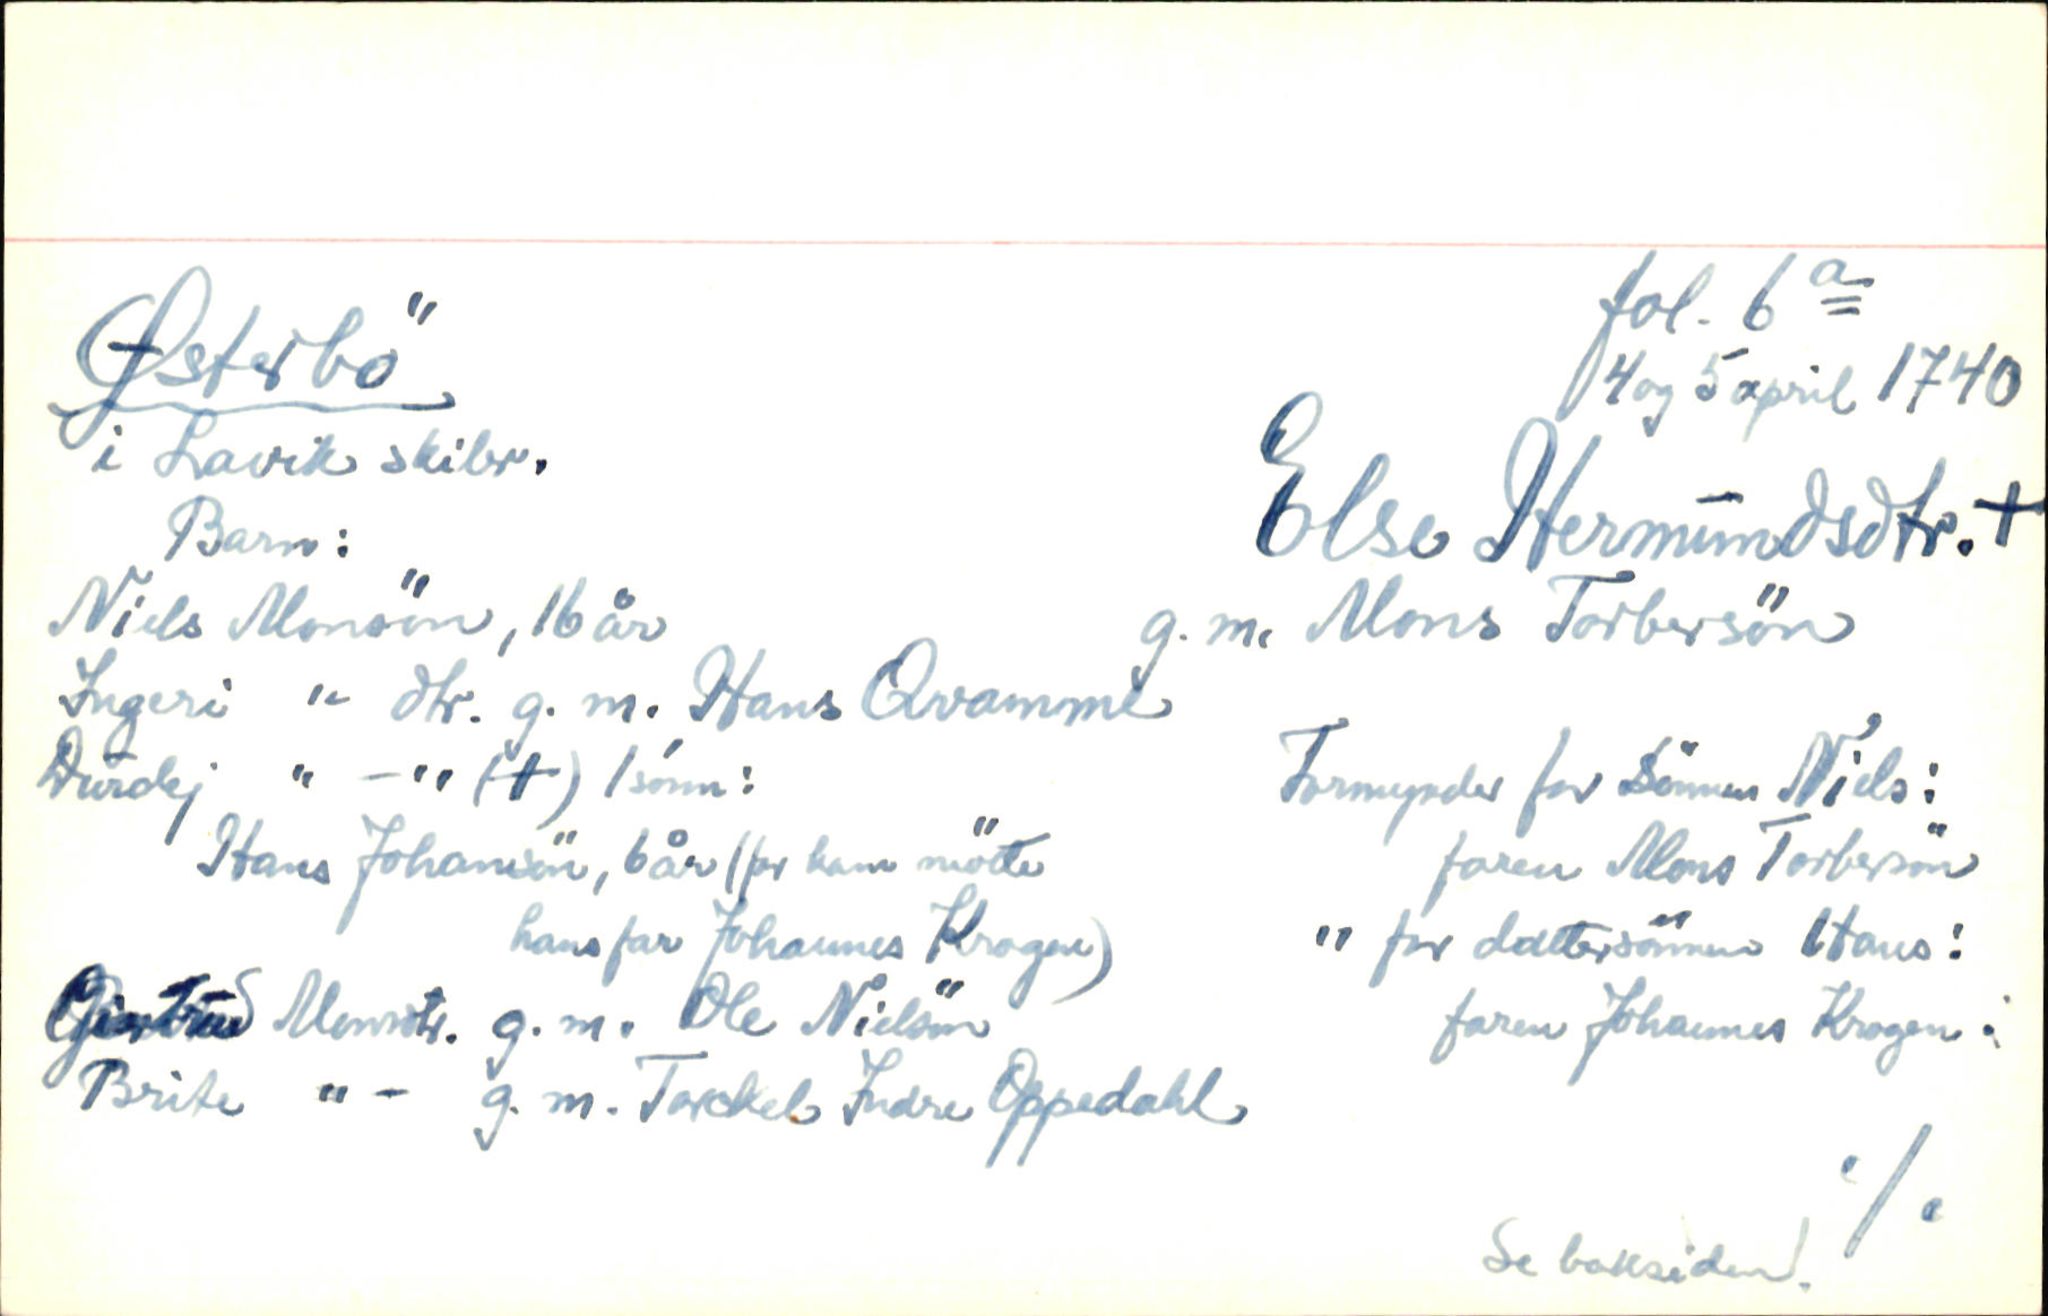 fol. 6 a
Österbö
4 og 5 april 1740
i Lavik skibr.
Else Hermundsdtr. +
Barn:
Niels Monsön, 16 år
g. m. Mons Torbersön
Ingeri " dtr. g. m. Hans Qvamme
Durdej " -" (+) 1 sönn:
Formynder for sönnen Niels:
Hans Johansön, 6 år (for ham mötte
faren Mons Torbersön
hans far Johannes Krogen)
" for dattersönnen Hans:
Giertrud Monsdtr. g. m. Ole Nielsön
faren Johannes Krogen.
Brite " - g. m. Torckel Indre Oppedahl
./.
Se baksiden!